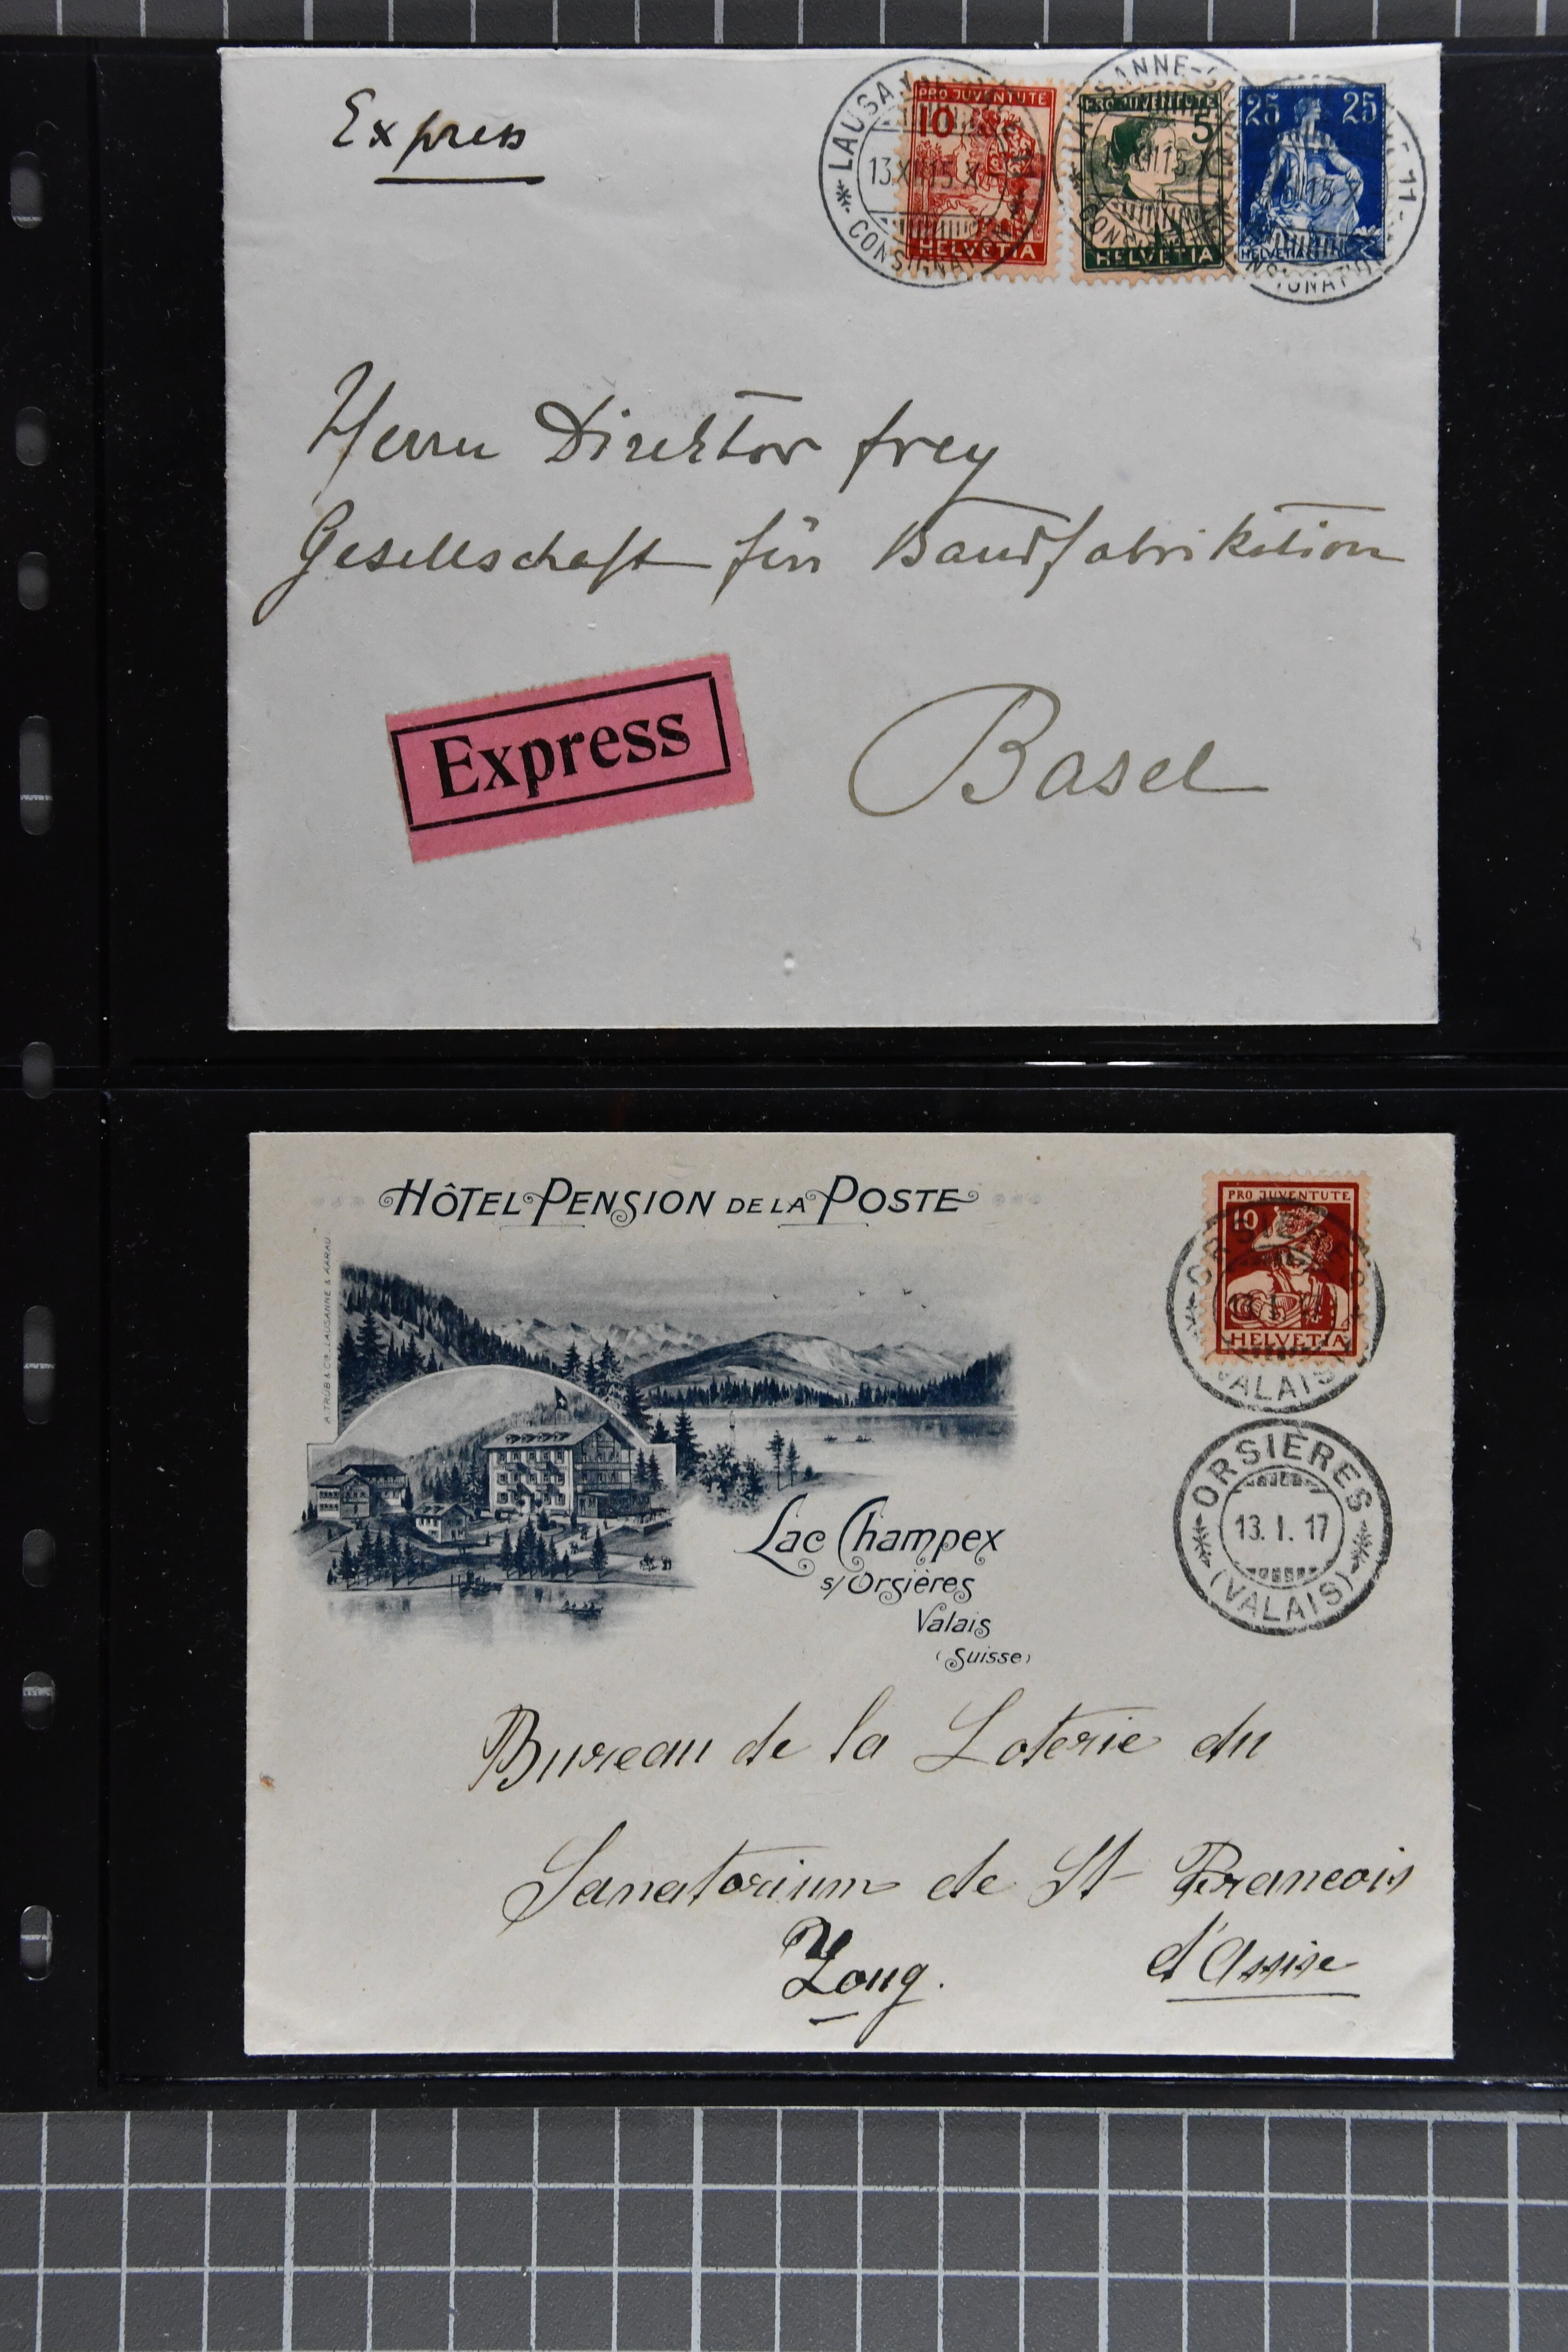 Express
LAUSANNE
13.XII.15.X
CONSIGNATION
PRO JUVENTUTE
10
HELVETIA
PRO JUVENTUTE
5
HELVETIA
25 25
HELVETIA
Herrn Direktor Frey
Gesellschaft für Bandfabrikation
Express
Basel
HÔTEL PENSION DE LA POSTE
A. TRÜB & CIE. LAUSANNE & AARAU
PRO JUVENTUTE
10
HELVETIA
ORSIÈRES
13. I. 17
(VALAIS)
ORSIÈRES
13. I. 17
(VALAIS)
Lac Champex
s/Orsières
Valais
(Suisse)
Bureau de la Loterie du
Sanatorium de St Francois
d'Assise
Zoug.